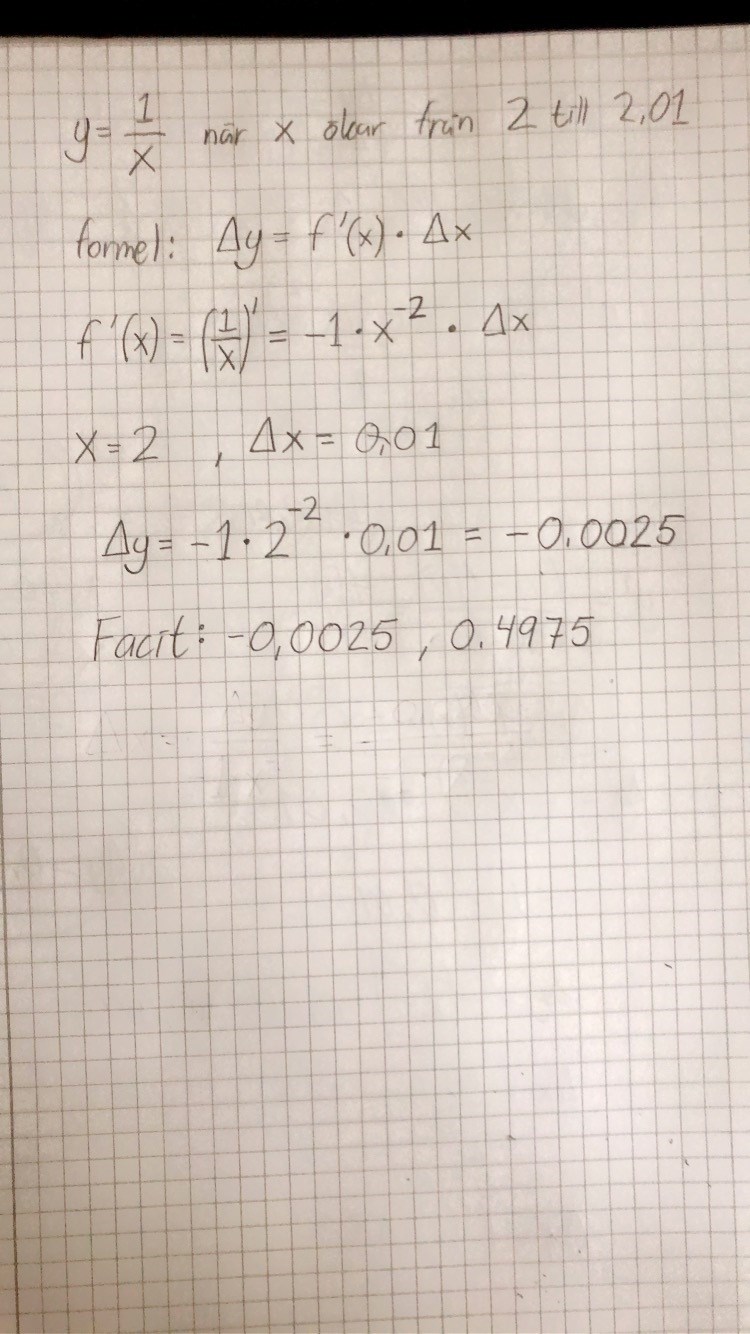 y = 1/x när x ökar från 2 till 2,01
formel: Δy = f'(x) · Δx
f'(x) = (1/x)' = -1 · x^-2 · Δx
x = 2 , Δx = 0,01
Δy = -1 · 2^-2 · 0,01 = -0.0025
Facit: -0,0025 , 0.4975